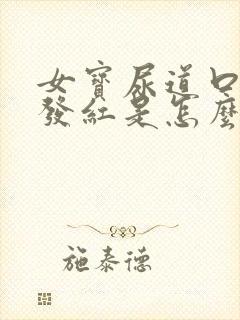 女寶尿道口
發紅是怎麼
施泰德